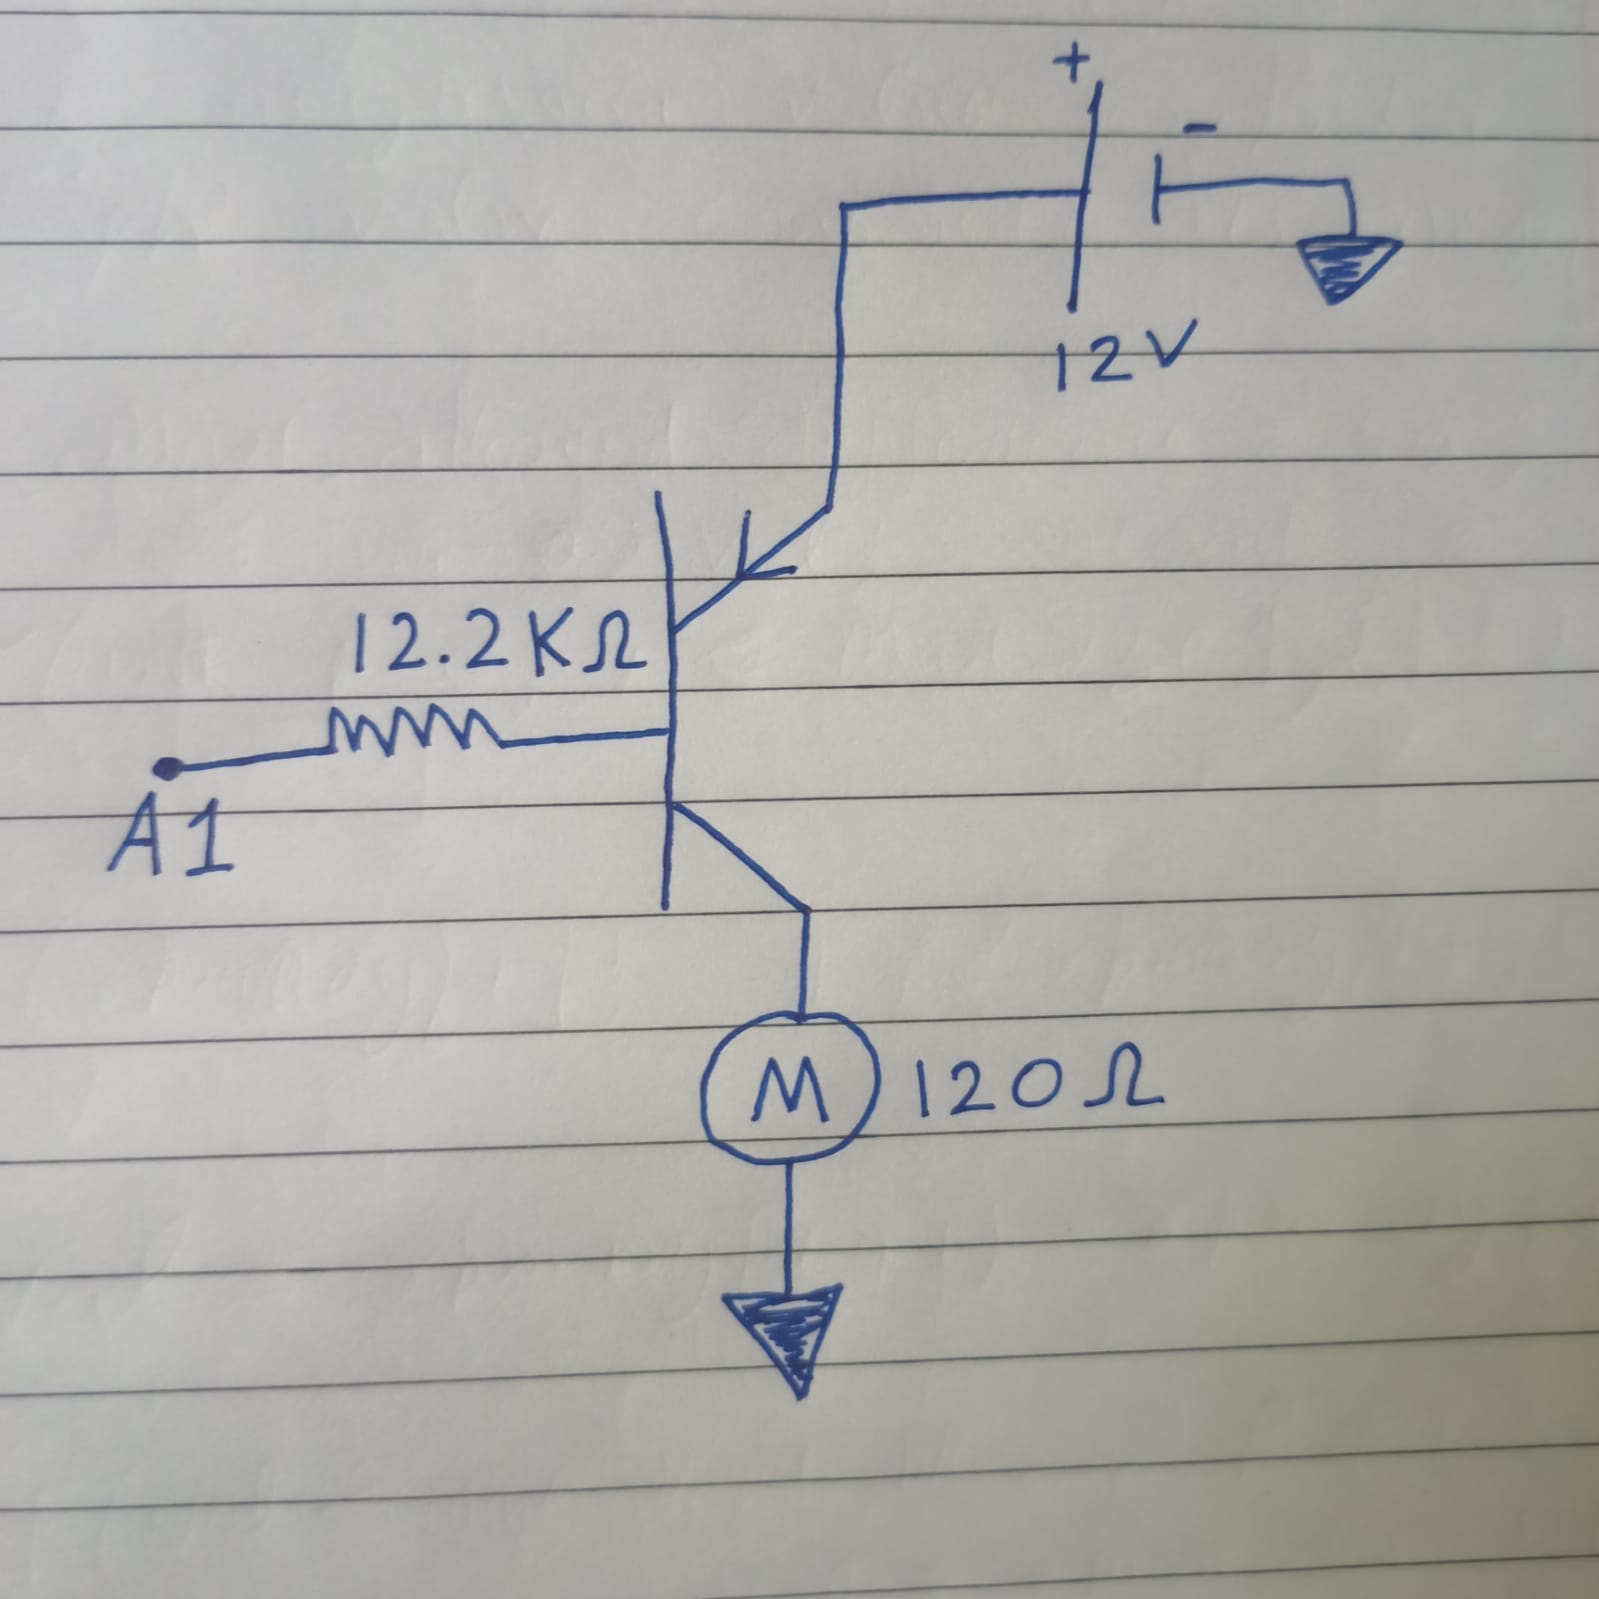 +
-
12V
12.2KΩ
A1
M 120Ω